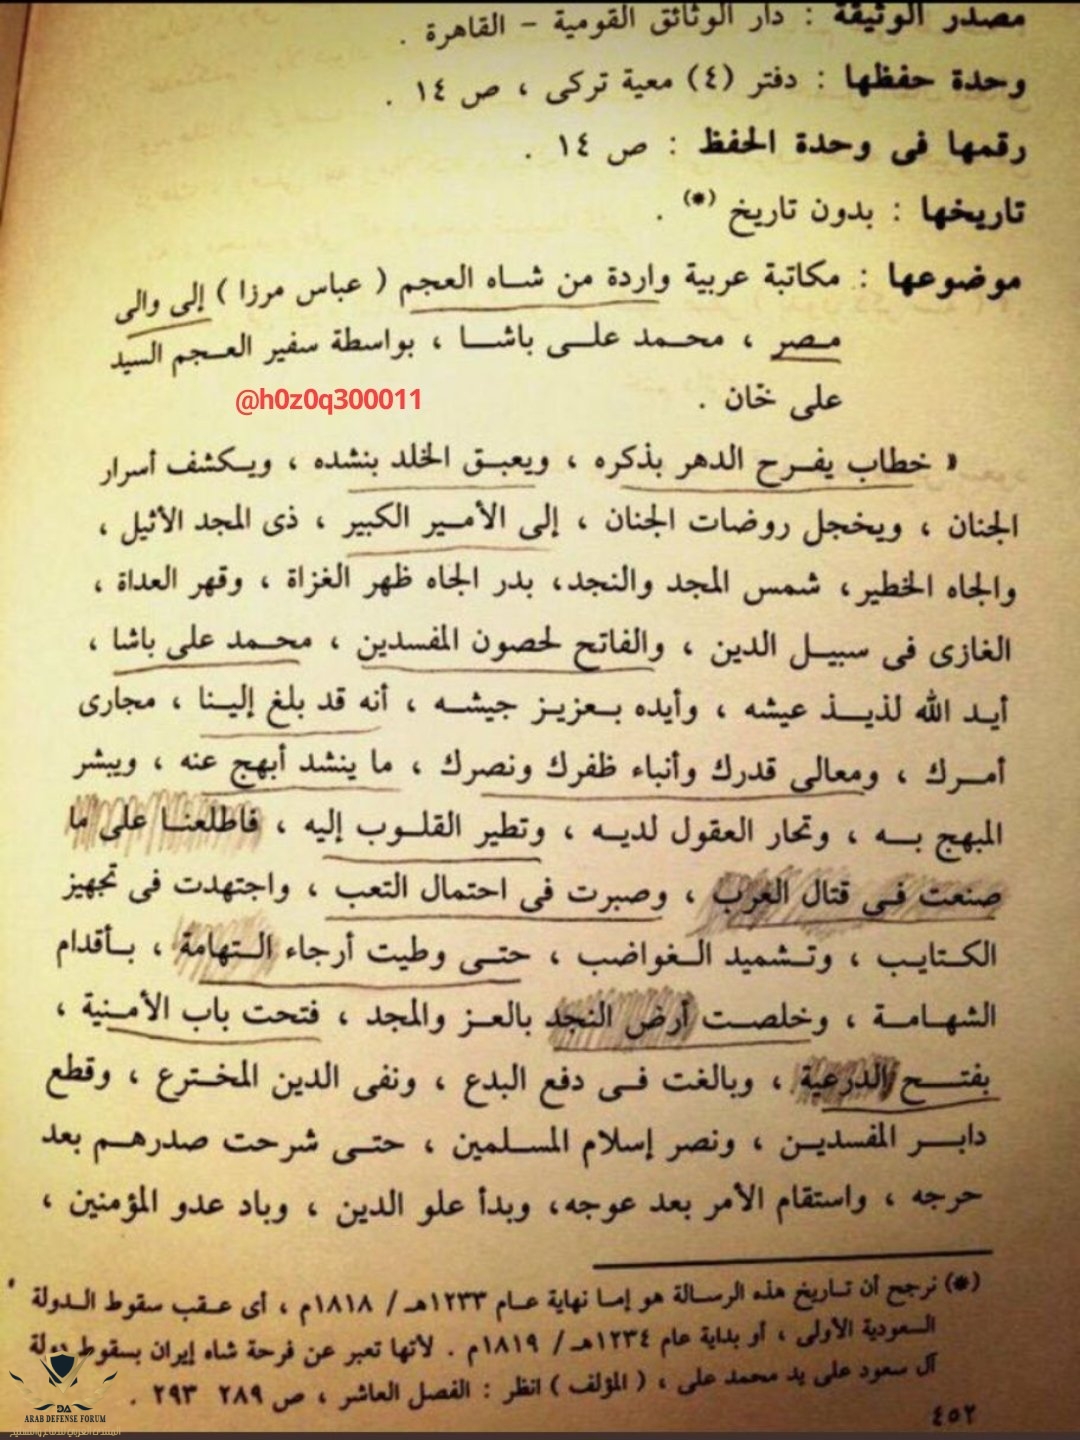 مصدر الوثيقة : دار الوثائق القومية - القاهرة .
وحدة حفظها : دفتر (٤) معية تركى ، ص ١٤ .
رقمها فى وحدة الحفظ : ص ١٤ .
تاريخها : بدون تاريخ (*) .
موضوعها : مكاتبة عربية واردة من شاه العجم ( عباس مرزا ) إلى والى
مصر ، محمد على باشا ، بواسطة سفير العجم السيد
على خان .
@h0z0q300011
« خطاب يفرح الدهر بذكره ، ويعبق الخلد بنشده ، ويكشف أسرار
الجنان ، ويخجل روضات الجنان ، إلى الأمير الكبير ، ذى المجد الأثيل ،
والجاه الخطير، شمس المجد والنجد، بدر الجاه ظهر الغزاة ، وقهر العداة ،
الغازى فى سبيل الدين ، والفاتح لحصون المفسدين ، محمد على باشا ،
أيد الله لذيذ عيشه ، وأيده بعزيز جيشه ، أنه قد بلغ إلينا ، مجارى
أمرك ، ومعالى قدرك وأنباء ظفرك ونصرك ، ما ينشد أبهج عنه ، ويبشر
المبهج به ، وتحار العقول لديه ، وتطير القلوب إليه ، فاطلعنا على ما
صنعت فى قتال العرب ، وصبرت فى احتمال التعب ، واجتهدت فى تجهيز
الكتايب ، وتشميد الغواضب ، حتى وطيت أرجاء التهامة ، بأقدام
الشهامة ، وخلصت أرض النجد بالعز والمجد ، فتحت باب الأمنية ،
بفتح الدرعية ، وبالغت فى دفع البدع ، ونفى الدين المخترع ، وقطع
دابر المفسدين ، ونصر إسلام المسلمين ، حتى شرحت صدرهم بعد
حرجه ، واستقام الأمر بعد عوجه، وبدأ علو الدين ، وباد عدو المؤمنين ،
(*) نرجح أن تاريخ هذه الرسالة هو إما نهاية عام ١٢٣٣هـ / ١٨١٨م ، أى عقب سقوط الدولة
السعودية الأولى ، أو بداية عام ١٢٣٤هـ / ١٨١٩م . لأنها تعبر عن فرحة شاه إيران بسقوط دولة
آل سعود على يد محمد على ، ( المؤلف ) انظر : الفصل العاشر ، ص ٢٨٩ ٢٩٣ .
٤٥٢
DA
ARAB DEFENSE FORUM